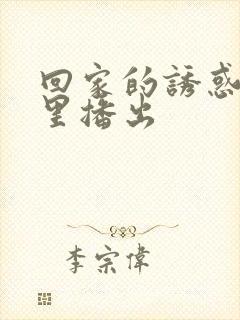 回家的誘惑
里播出
李宗偉